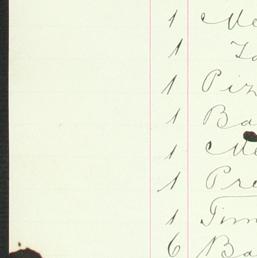 1 Me
1 To
1 Piz
1 Ba
1 Me
1 Pre
1 Tim
6 Ba